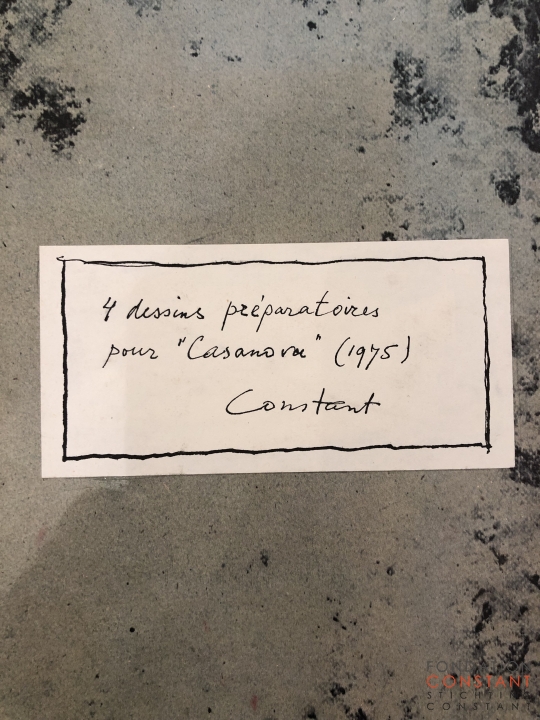 4 dessins préparatoires
pour "Casanova" (1975)
Constant
FONDATION
CONSTANT
STICHTING
CONSTANT